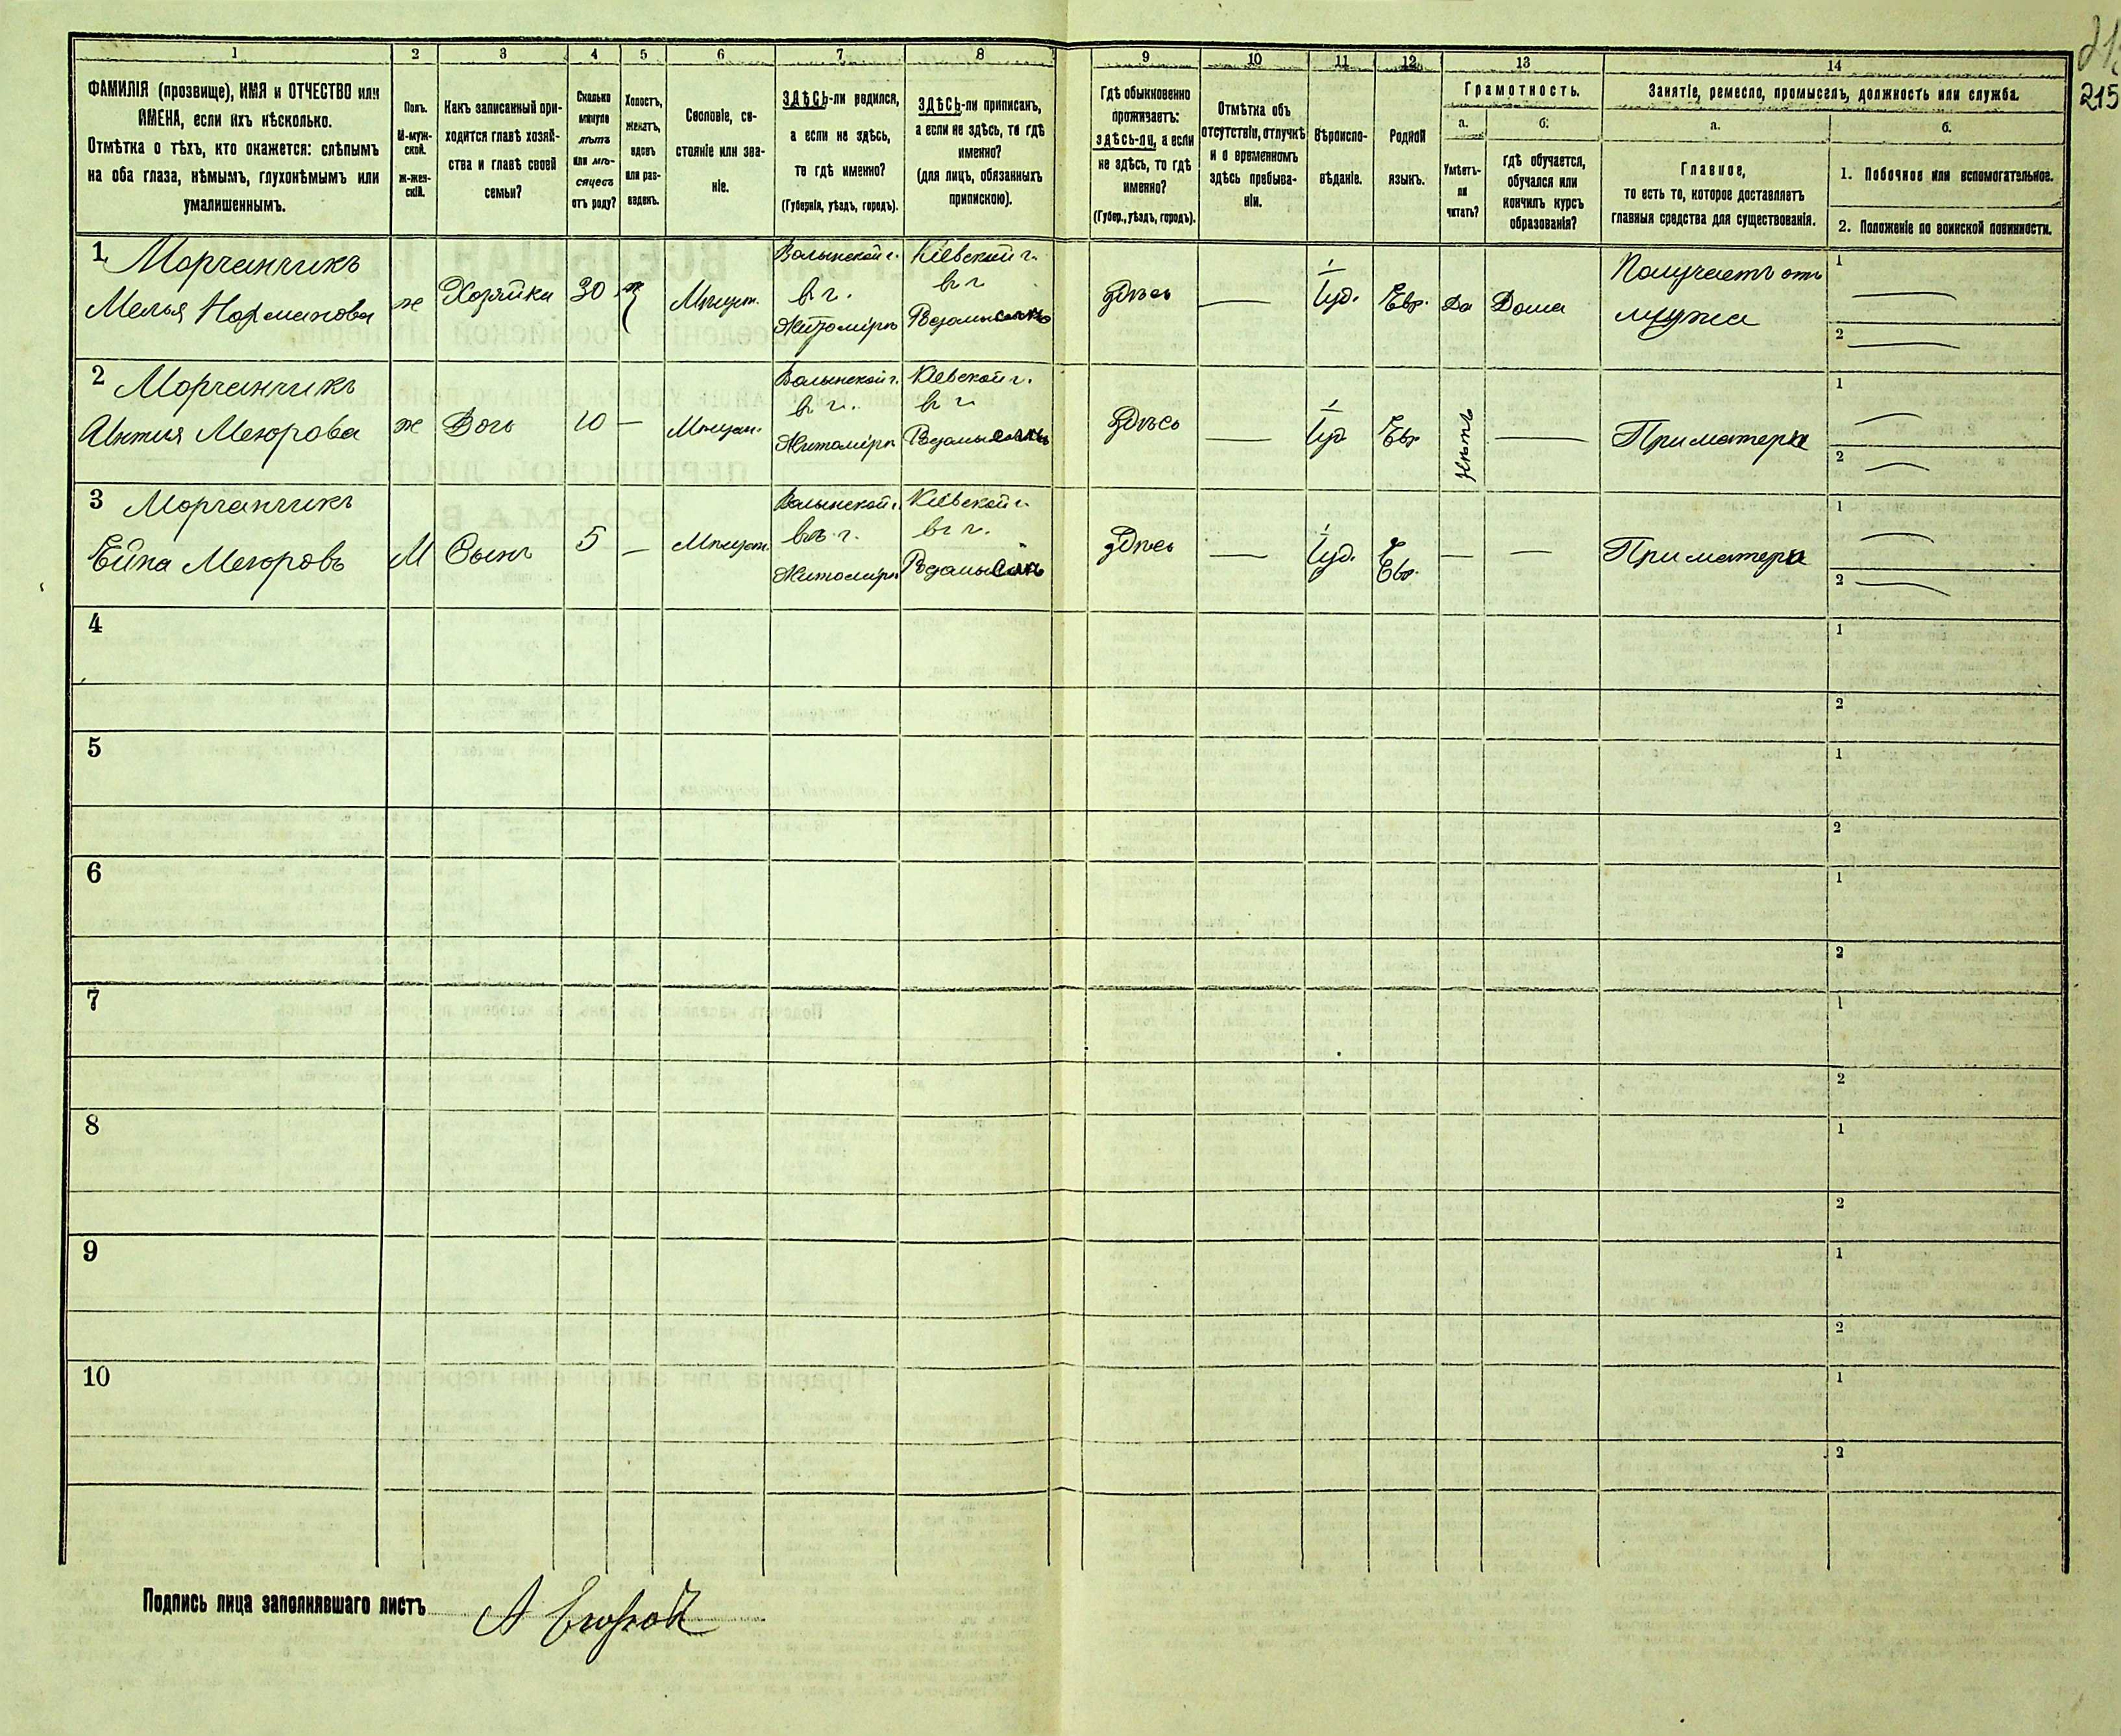 215
1 2 3 4 5 6 7 8 9 10 11 12 13 14
ФАМИЛІЯ (прозвище), ИМЯ и ОТЧЕСТВО или
ИМЕНА, если ихъ нѣсколько.
Отмѣтка о тѣхъ, кто окажется: слѣпымъ
на оба глаза, нѣмымъ, глухонѣмымъ или
умалишеннымъ.
Полъ.
М-муж-
ской.
Ж-жен-
скій.
Какъ записанный при-
ходится главѣ хозяй-
ства и главѣ своей
семьи?
Сколько
минуло
лѣтъ
или мѣ-
сяцевъ
отъ роду?
Холостъ,
женатъ,
вдовъ
или раз-
веденъ.
Сословіе, со-
стояніе или зва-
ніе.
ЗДѢСЬ-ли родился,
а если не здѣсь,
то гдѣ именно?
(Губернія, уѣздъ, городъ).
ЗДѢСЬ-ли приписанъ,
а если не здѣсь, то гдѣ
именно?
(для лицъ, обязанныхъ
припискою).
Гдѣ обыкновенно
проживаетъ:
здѣсь-ли, а если
не здѣсь, то гдѣ
именно?
(Губер., уѣздъ, городъ).
Отмѣтка объ
отсутствіи, отлучкѣ
и о временномъ
здѣсь пребыва-
ніи.
Вѣроиспо-
вѣданіе.
Родной
языкъ.
Грамотность.
а.
Умѣетъ-
ли
читать?
б.
гдѣ обучается,
обучался или
кончилъ курсъ
образованія?
Занятіе, ремесло, промыселъ, должность или служба.
а.
Главное,
то есть то, которое доставляетъ
главныя средства для существованія.
б.
1. Побочное или вспомогательное.
2. Положеніе по воинской повинности.
1 Морчанчикъ
ж Хозяйка 30 ж Мѣщан.
Волынской г.
в г.
Житоміръ
Кіевской г.
в г
Здѣсь — Іуд. Евр. Да Дома
Получаетъ отъ
мужа
1 —
2 —
2 Морчанчикъ
ж Дочь 10 — Мѣщан.
Волынской г.
в г.
Житоміръ
Кіевской г.
в г
Здѣсь — Іуд Евр Нѣтъ — При матери
1 —
2 —
3 Морчанчикъ
М Сынъ 5 — Мѣщан.
Волынской г.
в г.
Житоміръ
Кіевской г.
в г.
Здѣсь — Іуд. Евр. — — При матери
1 —
2 —
4 1
2
5 1
2
6 1
2
7 1
2
8 1
2
9 1
2
10 1
2
Подпись лица заполнявшаго листъ